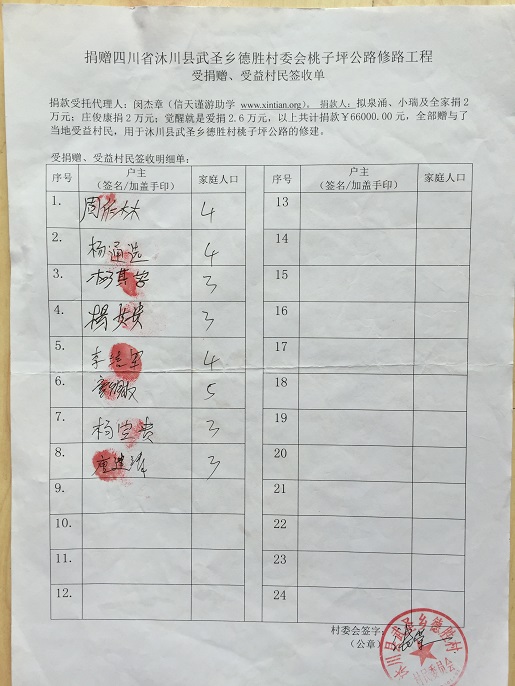 捐赠四川省沐川县武圣乡德胜村委会桃子坪公路修路工程
受捐赠、受益村民签收单
捐款受托代理人：闵杰章（信天谨游助学 www.xintian.org）。捐款人：拟泉涌、小瑞及全家捐2
万元；庄俊康捐2万元；觉醒就是爱捐2.6万元，以上共计捐款￥66000.00元，全部赠与了
当地受益村民，用于沐川县武圣乡德胜村桃子坪公路的修建。
受捐赠、受益村民签收明细单：
序号 户主 家庭人口 序号 户主 家庭人口
（签名/加盖手印） （签名/加盖手印）
1. 4 13
2. 杨通选 4 14
3. 杨其安 3 15
4. 3 16
5. 4 17
6. 5 18
7. 杨堂贵 3 19
8. 3 20
9. 21
10. 22
11. 23
12. 24
村委会签字：
（公章）
沐川县武圣乡德胜村
村民委员会